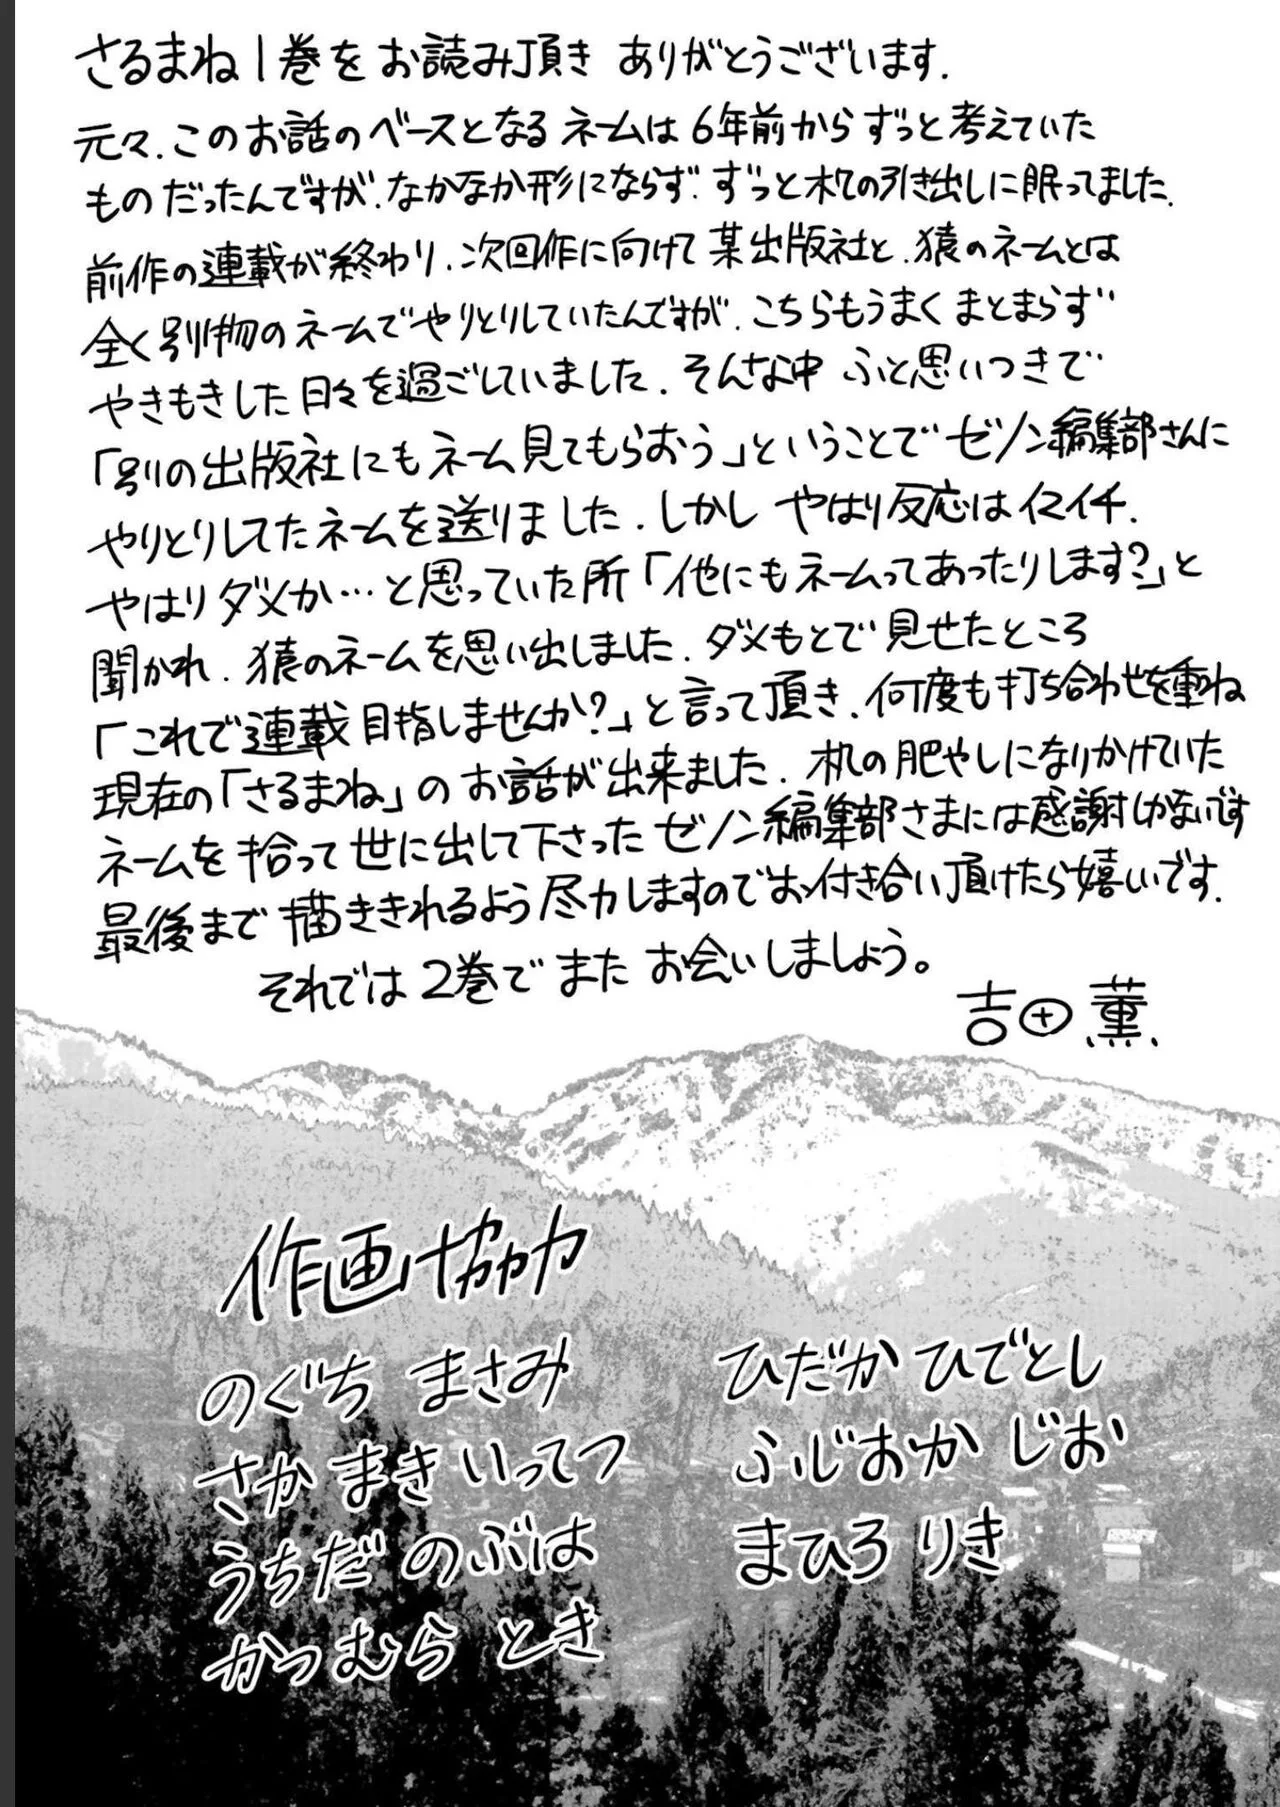 さるまね1巻をお読み頂き ありがとうございます.
元々、このお話のベースとなる ネームは 6年前から ずっと考えていた
ものだったんですが、なかなか形にならず、ずっと机の引き出しに眠ってました.
前作の連載が終わり、次回作に向けて 某出版社と、猿のネームとは
全く別物のネームでやりとりしていたんですが、こちらもうまく まとまらず
やきもきした日々を過ごしていました. そんな中 ふと思いつきで
「別の出版社にもネーム見てもらおう」ということで ゼノン編集部さんに
やりとりしてたネームを送りました. しかし やはり反応はイマイチ.
やはりダメか…と思っていた所「他にもネームってあったりします?」と
聞かれ、猿のネームを思い出しました. ダメもとで見せたところ
「これで連載目指しませんか?」と言って頂き、何度も打ち合わせを重ね
現在の「さるまね」の お話が出来ました. 机の肥やしになりかけていた
ネームを拾って世に出して下さった ゼノン編集部さまには感謝しかないです
最後まで描ききれるよう尽力しますのでお付き合い頂けたら嬉しいです.
それでは2巻で また お会いしましょう。
吉田 薫
作画協力
のぐち まさみ
さかまき いってつ
うちだ のぶは
かつむら とき
ひだか ひでとし
ふじおか じお
まひろ りき